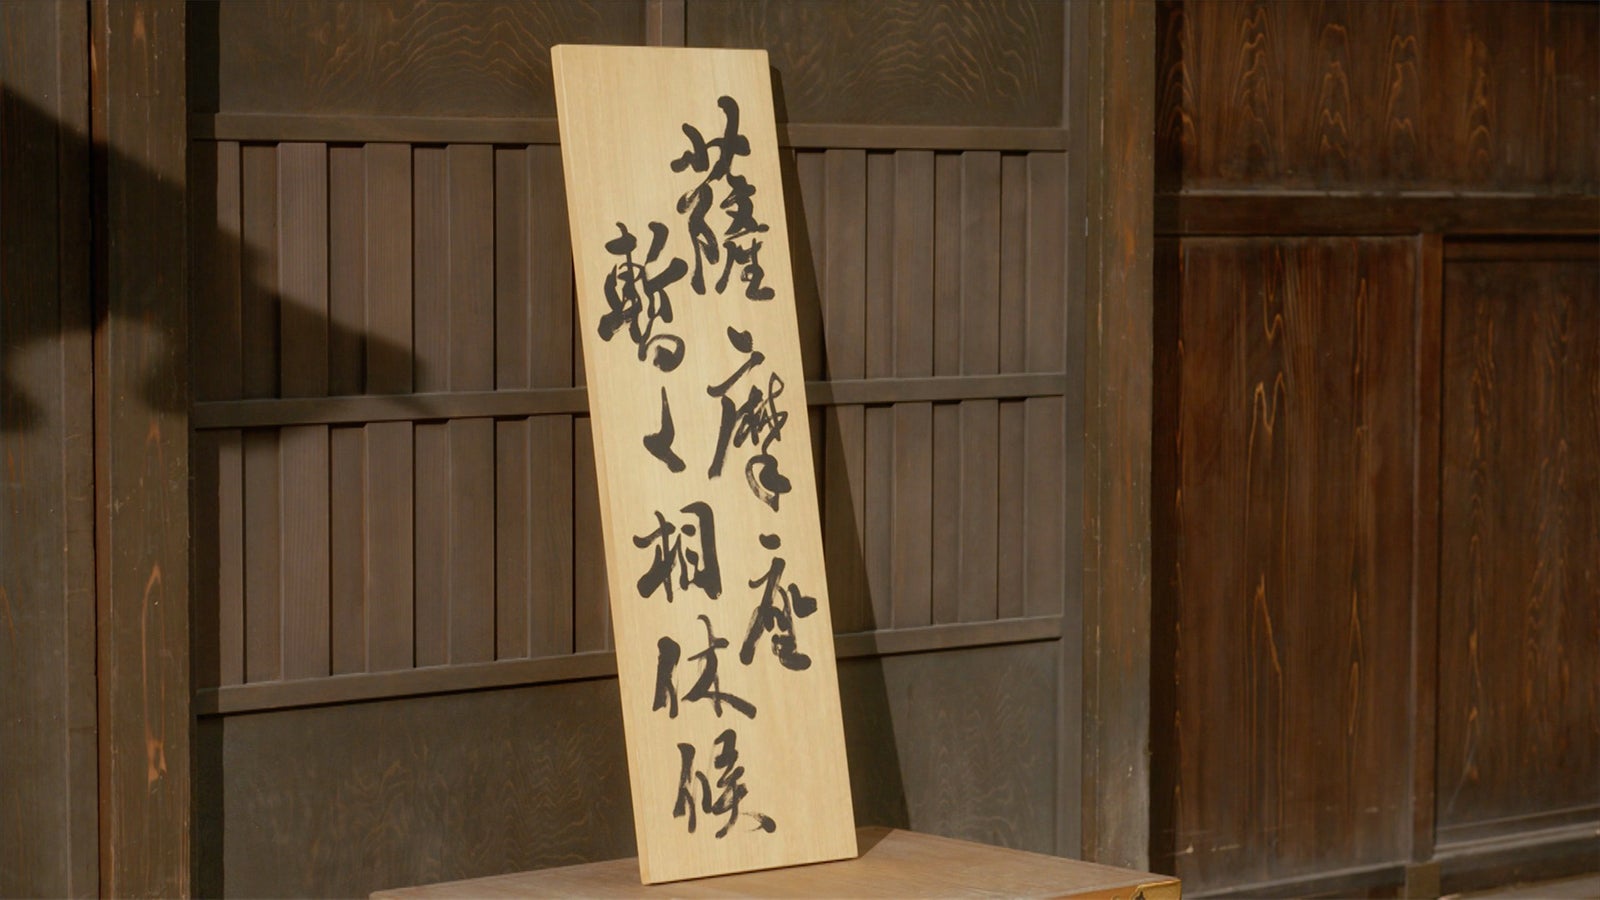 薩摩座
暫く相休候